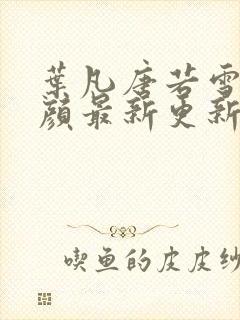 葉凡唐若雪
顏最新更新
喫魚的皮皮紗